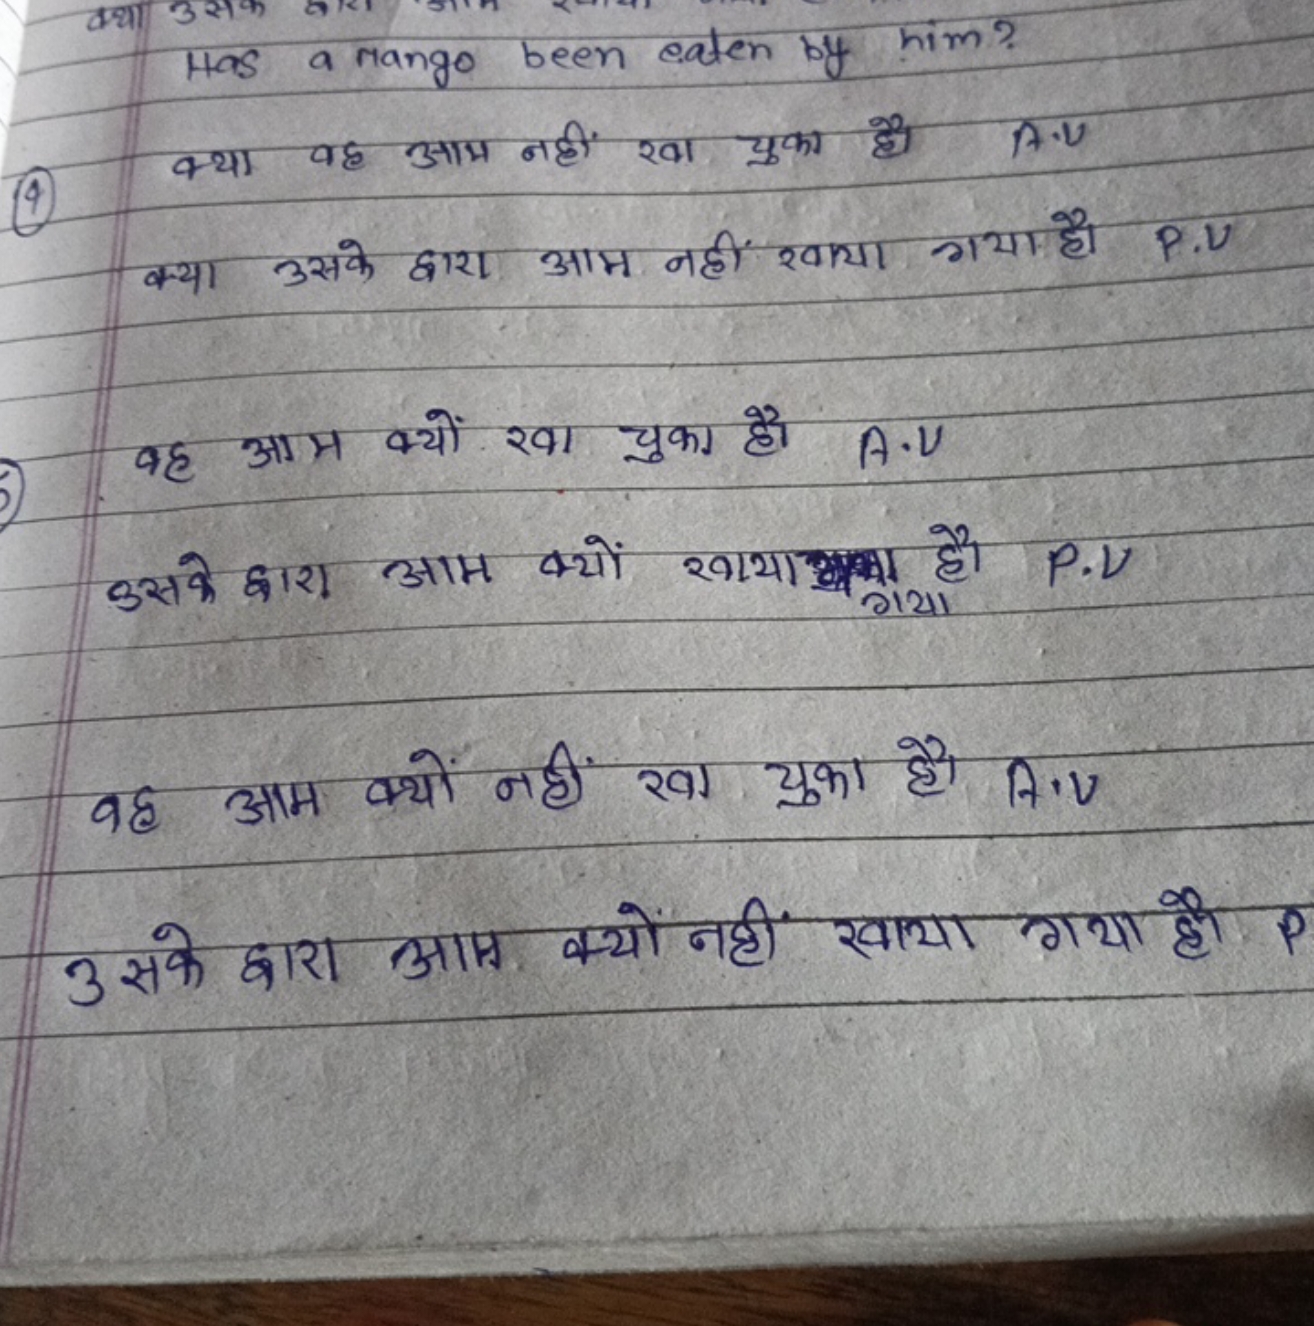 क्या उसके द्वारा आम खाया गया
Has a mango been eaten by him?
क्या वह आम नहीं खा चुका है। A.V
(4)
क्या उसके द्वारा आम नहीं खाया गया है। P.V
वह आम क्यों खा चुका है। A.V
उसके द्वारा आम क्यों खाया गया है। P.V
वह आम क्यों नहीं खा चुका है। A.V
उसके द्वारा आम क्यों नहीं खाया गया है। P